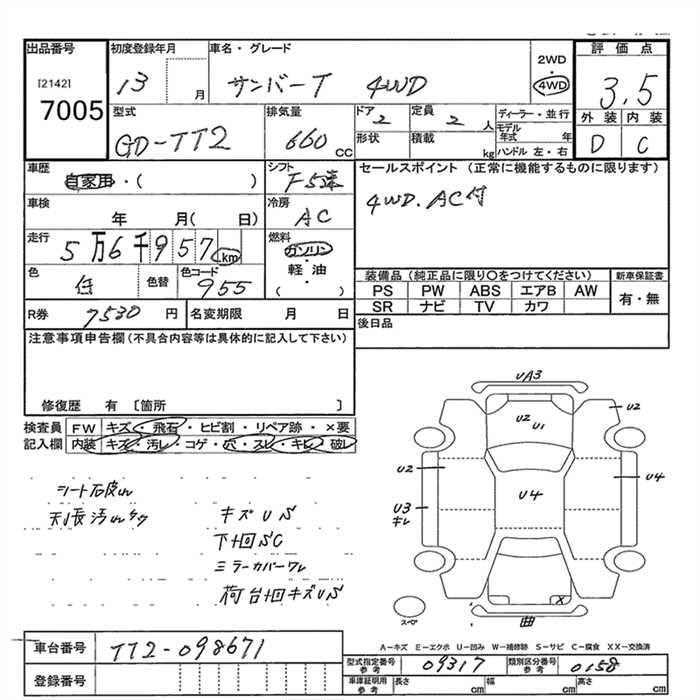 出品番号 [2142] 7005
初度登録年月 13 月
車名・グレード サンバーT 4WD
2WD 4WD
評価点 3.5
外装 内装
D C
型式 GD-TT2
排気量 660 CC
ドア 2
定員 2 人
形状
積載 kg
ディーラー・並行
モデル年式 年
ハンドル 左・右
車歴 自家用・( )
シフト F5速
セールスポイント (正常に機能するものに限ります)
4WD. AC付
車検 年 月( 日)
冷房 AC
走行 5万6千957km
燃料 ガソリン・軽油・( )
色 白 色替 色コード 955
装備品 (純正品に限り〇をつけてください)
新車保証書
PS PW ABS エアB AW 有・無
SR ナビ TV カワ
R券 7530 円
名変期限 月 日
後日品
注意事項申告欄 (不具合内容等は具体的に記入して下さい)
修復歴 有 [箇所 ]
検査員記入欄 FW キズ・飛石・ヒビ割・リペア跡・×要
内装 キズ・汚レ・コゲ・穴・スレ・キレ・破レ
UA3
U2 U1 U2
U2
U4 U4
U3
キレ
X
スペア
曲
シート石皮れ
天張汚れ
キズUS
下廻SC
ミラーカバーワレ
荷台廻キズUS
A-キズ E-エクボ U-凹み W-補修跡 S-サビ C-腐食 XX-交換済
車台番号 TT2-098671
型式指定番号 参考 09317
類別区分番号 参考 0158
登録番号
車庫証明用 参考 長さ cm 幅 cm 高さ cm